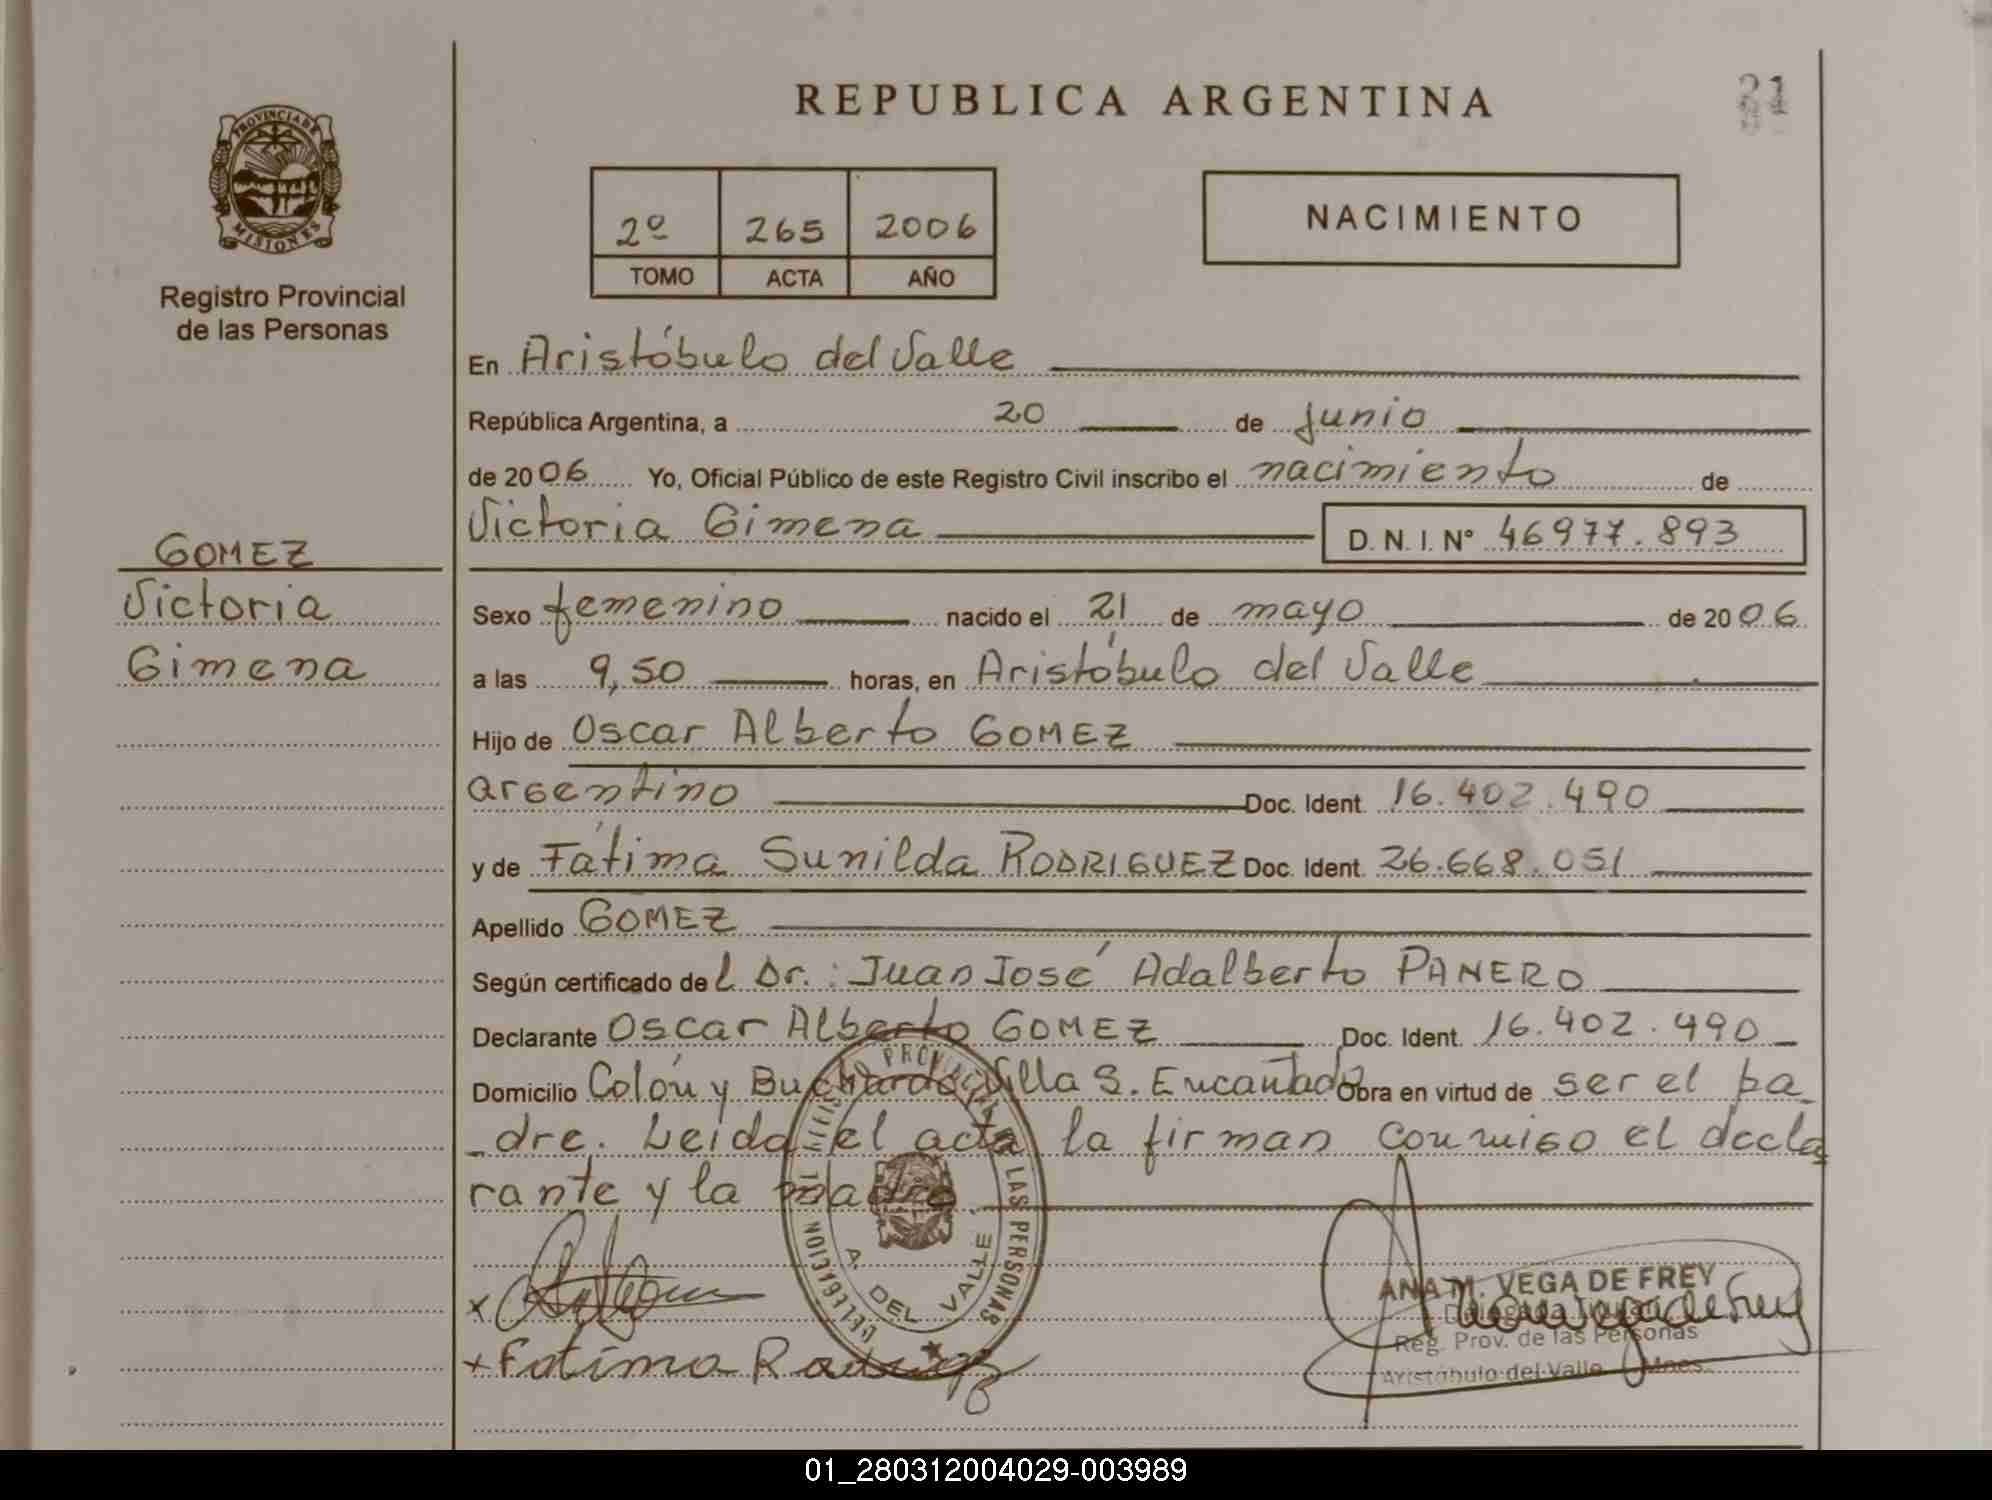 REPUBLICA ARGENTINA
21
PROVINCIA DE
MISIONES
Registro Provincial
de las Personas
2º 265 2006
TOMO ACTA AÑO
NACIMIENTO
En Aristóbulo del Valle
República Argentina, a 20 de junio
de 2006 Yo, Oficial Público de este Registro Civil inscribo el nacimiento de
Victoria Gimena D. N. I. N° 46977.893
GOMEZ
Victoria
Gimena
Sexo femenino nacido el 21 de mayo de 2006
a las 9,50 horas, en Aristóbulo del Valle
Hijo de Oscar Alberto GOMEZ
argentino Doc. Ident. 16.402.490
y de Fátima Sunilda RODRIGUEZ Doc. Ident. 26.668.051
Apellido GOMEZ
Según certificado del Dr.: Juan José Adalberto PANERO
Declarante Oscar Alberto GOMEZ Doc. Ident. 16.402.490
Domicilio Colón y Buchardo, Villa S. Encantado Obra en virtud de ser el pa_
_dre. Leída el acta la firman conmigo el decla
rante y la madre.
DELEGACION REGISTRO PROVINCIAL DE LAS PERSONAS
A. DEL VALLE
x
+ Fatima Rodriguez
ANA M. VEGA DE FREY
Reg. Prov. de las Personas
Aristóbulo del Valle Mnes.
01_280312004029-003989